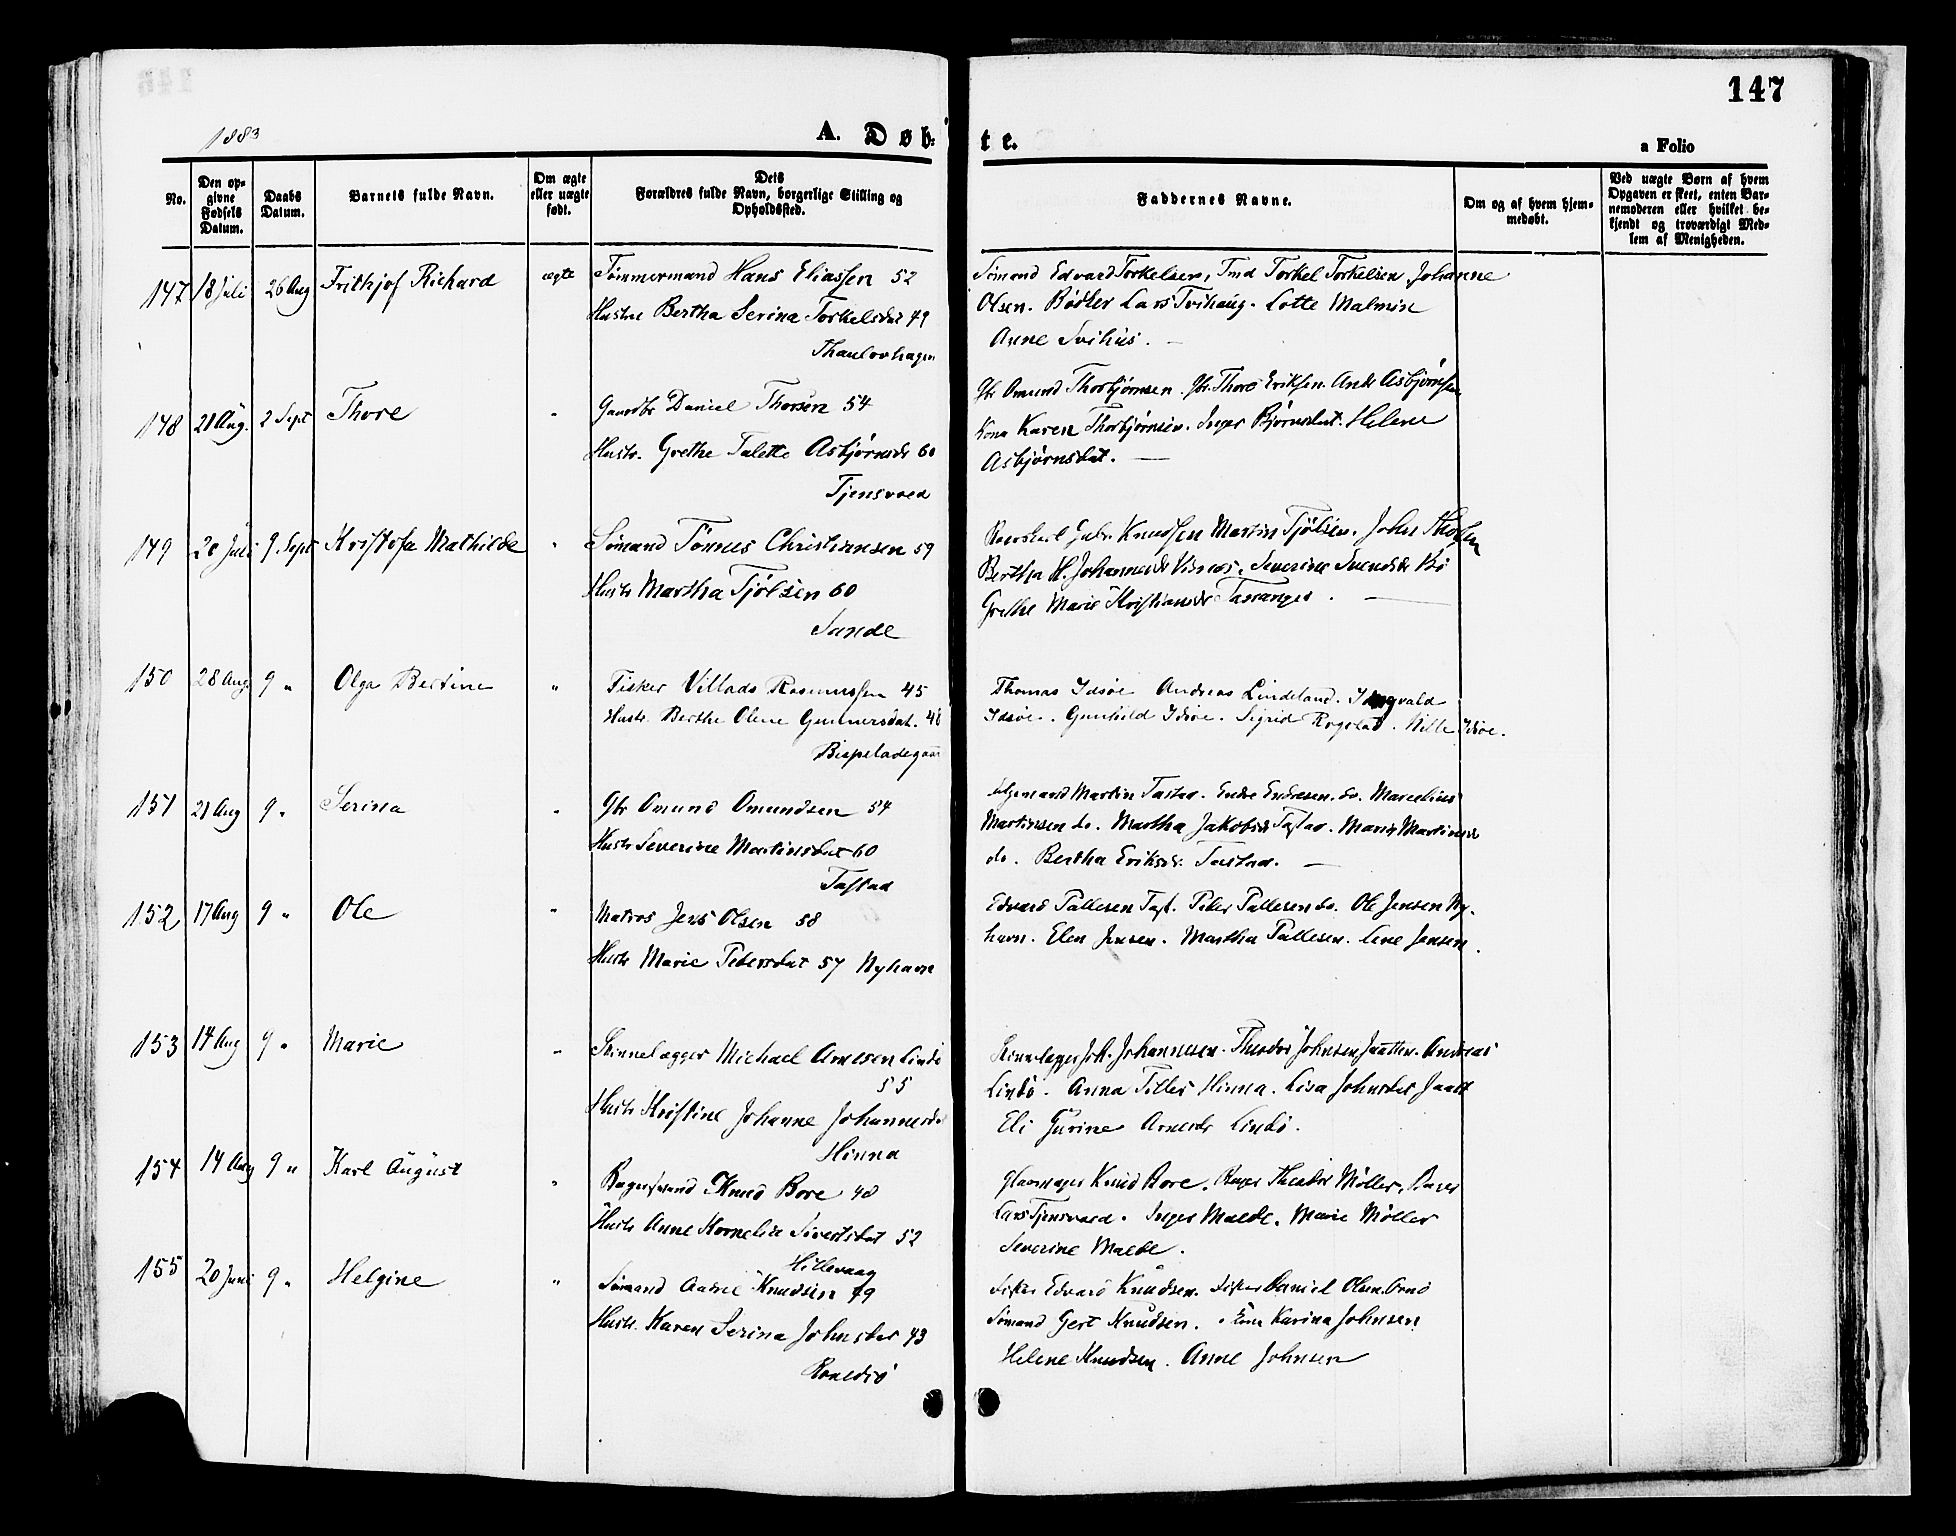 147
1883
A. Døb-
te.
a Folio
No.
Den op-
givne
Fødsels
Datum.
Daabs
Datum.
Barnets fulde Navn.
Om ægte
eller uægte
født.
Dets
Forældres fulde Navn, borgerlige Stilling og
Opholdssted.
Faddernes Navne.
Om og af hvem hjem-
medøbt.
Ved uægte Børn af hvem
Opgaven er skeet, enten Bar-
nemoderen eller hvilket be-
kjendt og troværdigt Med-
lem af Menigheden.
147 18 Juli 26 Aug Frithjof Richard ægte Tømmermand Hans Eliassen 52
Hustru Bertha Serina Torkelsdat 49
Thaulovhagen
Sømand Edvard Torkelsen, Tmd Torkel Torkelsen, Johanne
Olsen. Bødker Lars Tvihaug. Lotte Malmin
Anne Svihus.
148 21 Aug. 2 Sept Thore " Gaardbr Daniel Thorsen 54
Hustr. Grethe Talette Asbjørnsdr 60
Tjensvold
Gbr Omund Thorbjørnsen. Gbr. Thore Eriksen. Andr Asbjørnsen
Kona Karen Thorbjørnsen. Inger Bjørnsdat. Helene
Asbjørnsdat.
149 20 Juli 9 Sept Kristofa Mathilde " Sømand Tønnes Christiansen 59
Hustr Martha Tjølsen 60
Sande
Knudsen Martin Tjølsen. John Thorsen
Bertha H. Johannesdr Visnes. Severine Svendsdr Bø
Grethe Marie Kristiansdr Tananger.
150 28 Aug. 9 " Olga Bertine " Fisker Villads Rasmussen 45
Hustr. Berthe Oline Gunnarsdat. 48
Bispeladegaard
Thomas Idsøe Andreas Lindeland. Ingvald
Idsøe. Gunhild Idsøe. Sigrid Rogstad. Nille Idsøe.
151 21 Aug 9 " Serina " Gbr Omund Omundsen 54
Hustr Severine Martinsdat 60
Tastad
Martin Tastad. Endre Endresen. do. Marcelius
Martinsen do. Martha Jakobsdr Tastad. Maria Martinsdr
do. Bertha Eriksdr. Tastad.
152 17 Aug 9 " Ole " Matros Jens Olsen 58
Hustr Marie Pedersdat 57 Nyhavn
Edvard Pallesen Tast. Peder Pallesen do. Ole Jensen Ny-
havn. Elen Jensen. Martha Pallesen. Lene Jensen.
153 14 Aug 9 " Marie " Skinnelægger Michael Arnesen Lindø
55
Hustr Kristine Johanne Johannesdr
Hinna
Skinnelegger Joh. Johannesen. Theodor Johnsen Jaatten. Andreas
Lindø. Anna Tilles Hinna. Lisa Johnsdat Jaatt
Eli Gurine Arnesdr Lindø.
154 14 Aug 9 " Karl August " Bagersvend Knud Bore 48
Hustr Anne Kornelia Sivertsdat 52
Hillevaag
Glasmager Knud Bore. Bager Theodor Møller. Bager
Lars Tjensvold. Inger Malde. Marie Møller
Severine Malde.
155 20 Juni 9 " Helgine " Sømand Aadne Knudsen 49
Hustr. Karen Serina Johnsdat 43
Roaldsø
Fisker Edvard Knudsen. Fisker Daniel Olsen Ormø
Sømand Gert Knudsen. Karina Johnsen
Helene Knudsen. Anne Johnsen